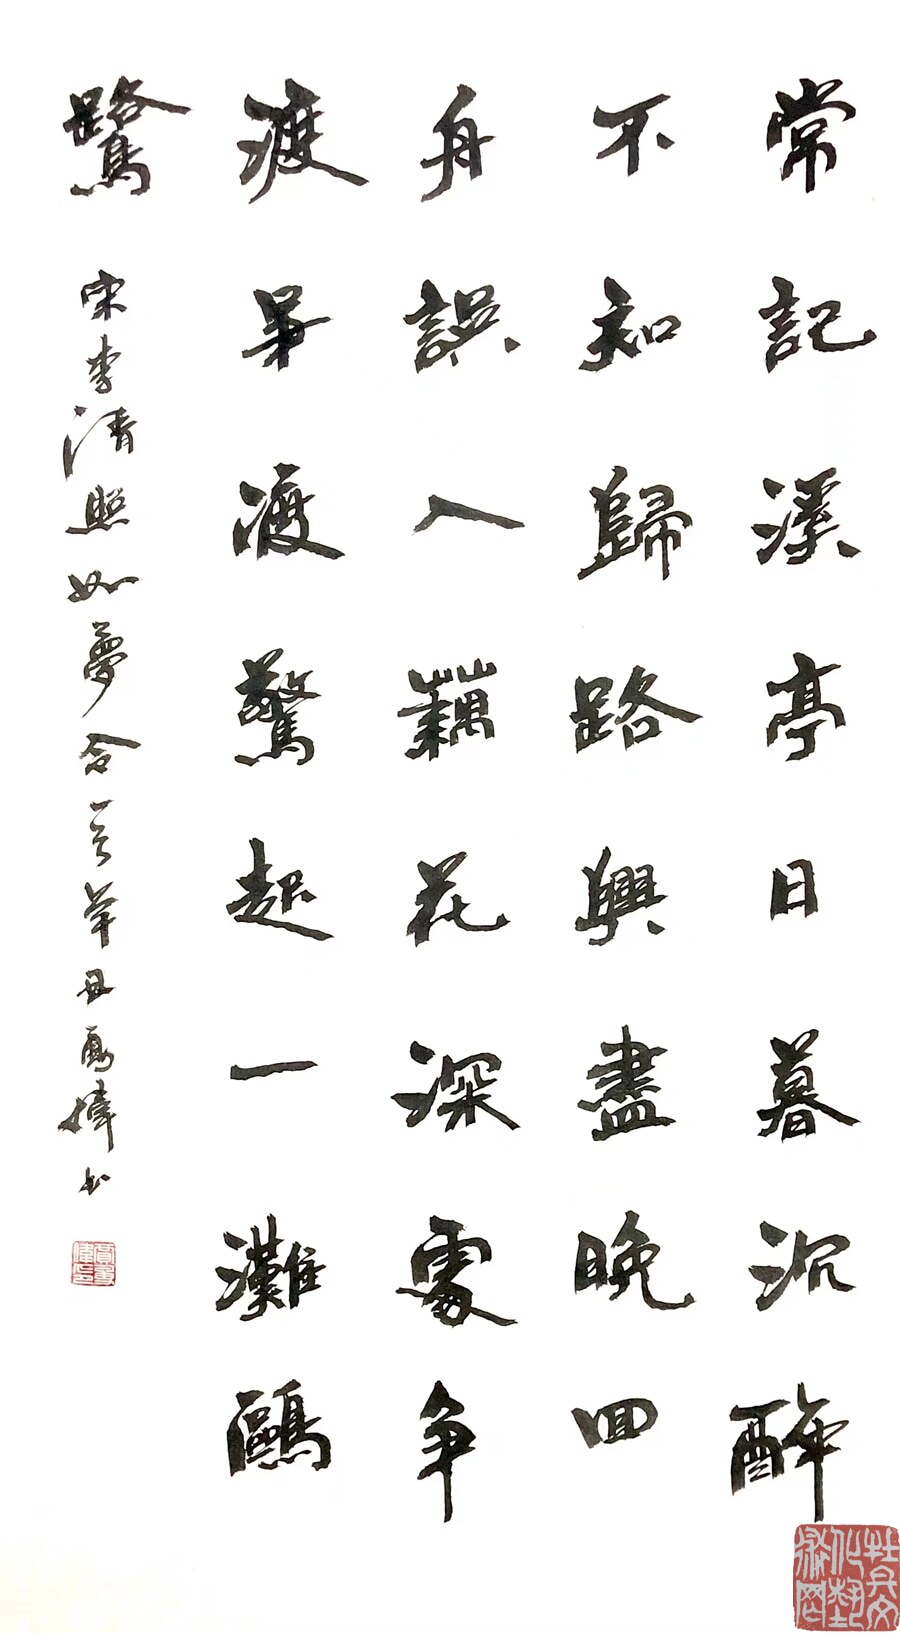 常記溪亭日暮沉醉
不知歸路興盡晚回
舟誤入藕花深處争
渡爭渡驚起一灘鷗
鷺
宋李清照如夢令一首辛丑書